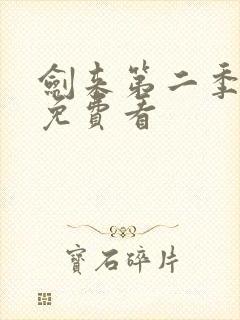 劍来第二季
免費看
寶石碎片